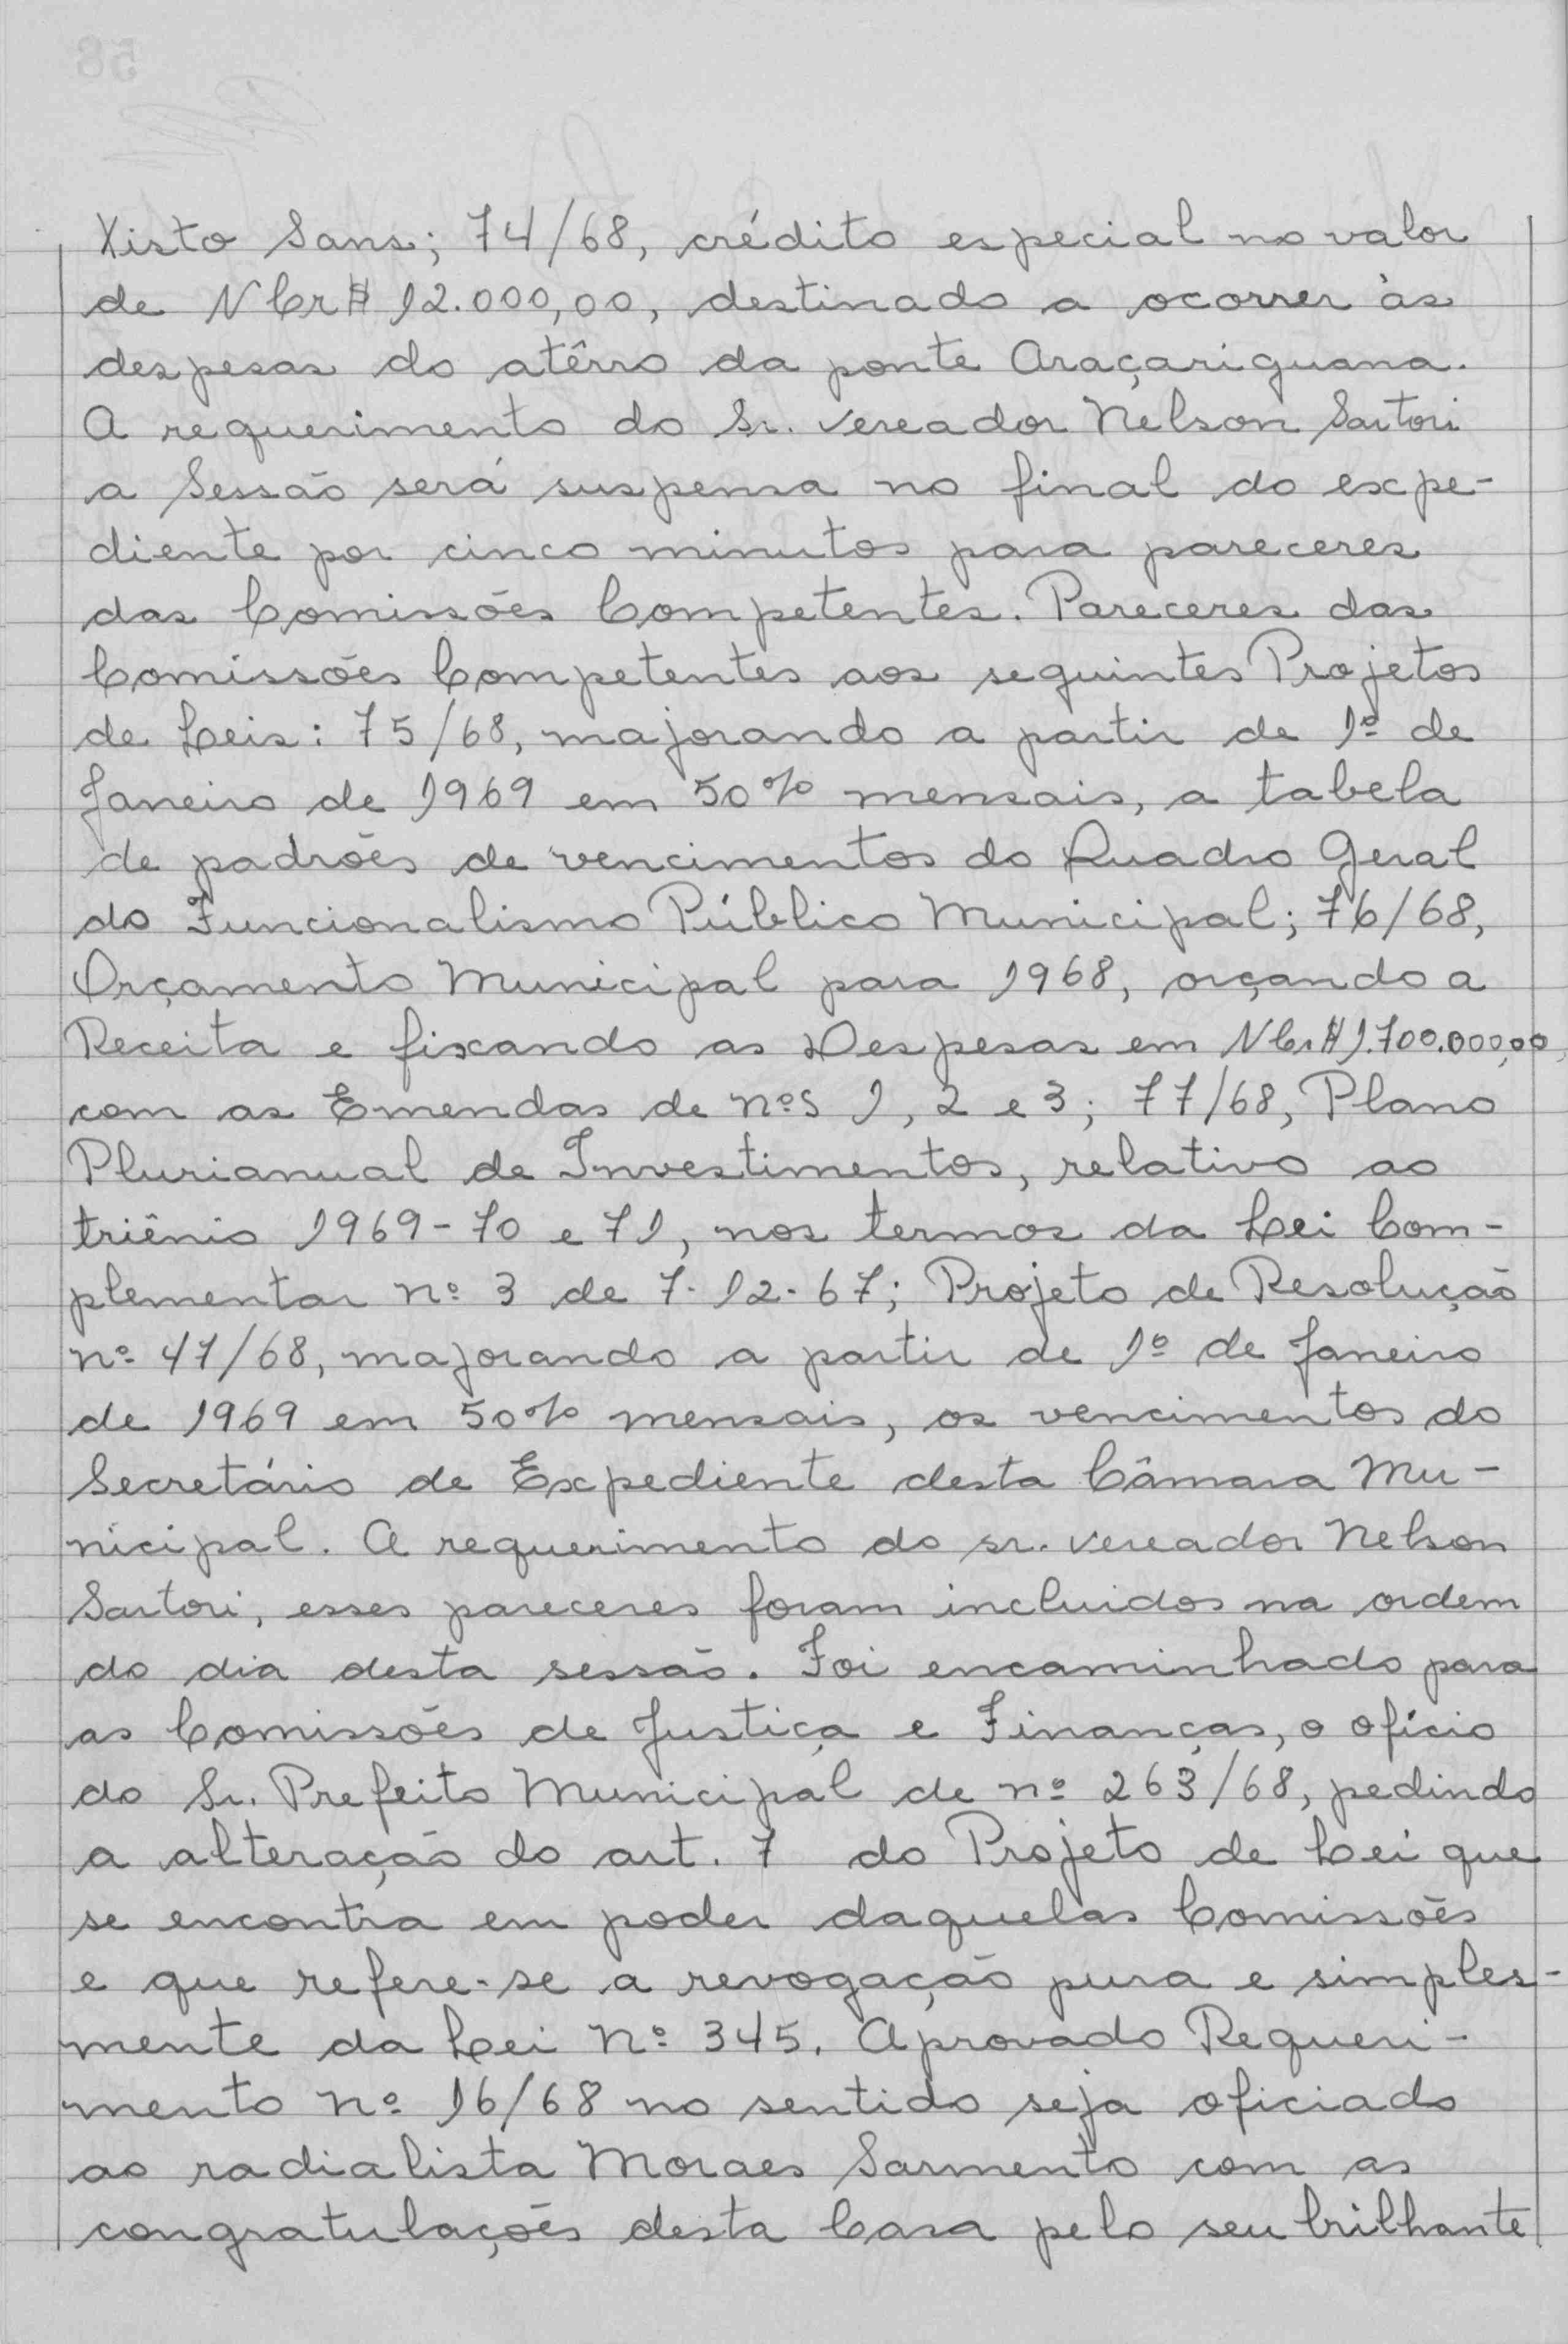 Xisto Sans; 74/68, crédito especial no valor
de NCr$ 12.000,00, destinado a ocorrer às
despesas do atêrro da ponte Araçariguana.
A requerimento do Sr. vereador Nelson Sartori
a Sessão será suspensa no final do expe-
diente por cinco minutos para pareceres
das Comissões Competentes. Pareceres das
Comissões Competentes aos seguintes Projetos
de Leis: 75/68, majorando a partir de 1º de
Janeiro de 1969 em 50% mensais, a tabela
de padrões de vencimentos do Quadro Geral
do Funcionalismo Público Municipal; 76/68,
Orçamento Municipal para 1968, orçando a
Receita e fixando as Despesas em NCr$ 1.700.000,00,
com as Emendas de nºs 1, 2 e 3; 77/68, Plano
Plurianual de Investimentos, relativo ao
triênio 1969-70 e 71, nos termos da Lei Com-
plementar nº 3 de 7-12-67; Projeto de Resolução
nº 47/68, majorando a partir de 1º de Janeiro
de 1969 em 50% mensais, os vencimentos do
Secretário de Expediente desta Câmara Mu-
nicipal. A requerimento do sr. vereador Nelson
Sartori, esses pareceres foram incluidos na ordem
do dia desta sessão. Foi encaminhado para
as Comissões de Justiça e Finanças, o ofício
do Sr. Prefeito Municipal de nº 263/68, pedindo
a alteração do art. 7 do Projeto de Lei que
se encontra em poder daquelas Comissões
e que refere-se a revogação pura e simples-
mente da Lei Nº 345. Aprovado Requeri-
mento nº 16/68 no sentido seja oficiado
ao radialista Moraes Sarmento com as
congratulações desta Casa pelo seu brilhante